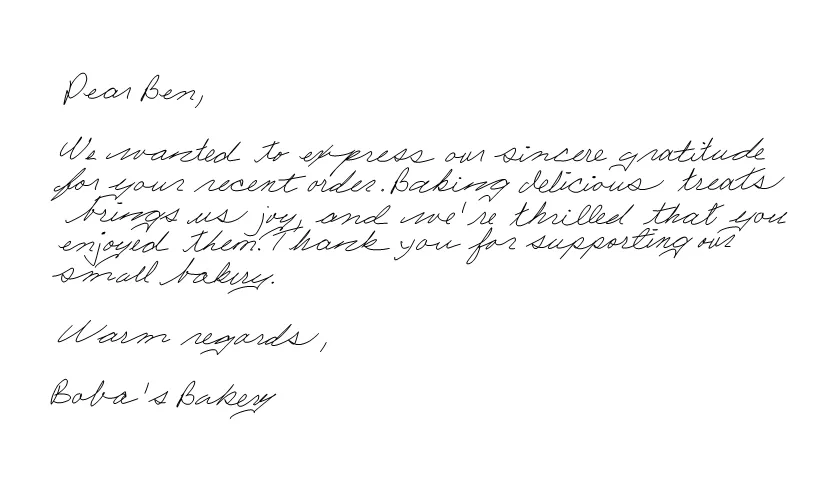 Dear Ben,
We wanted to express our sincere gratitude
for your recent order. Baking delicious treats
brings us joy, and we're thrilled that you
enjoyed them. Thank you for supporting our
small bakery.
Warm regards,
Boba's Bakery